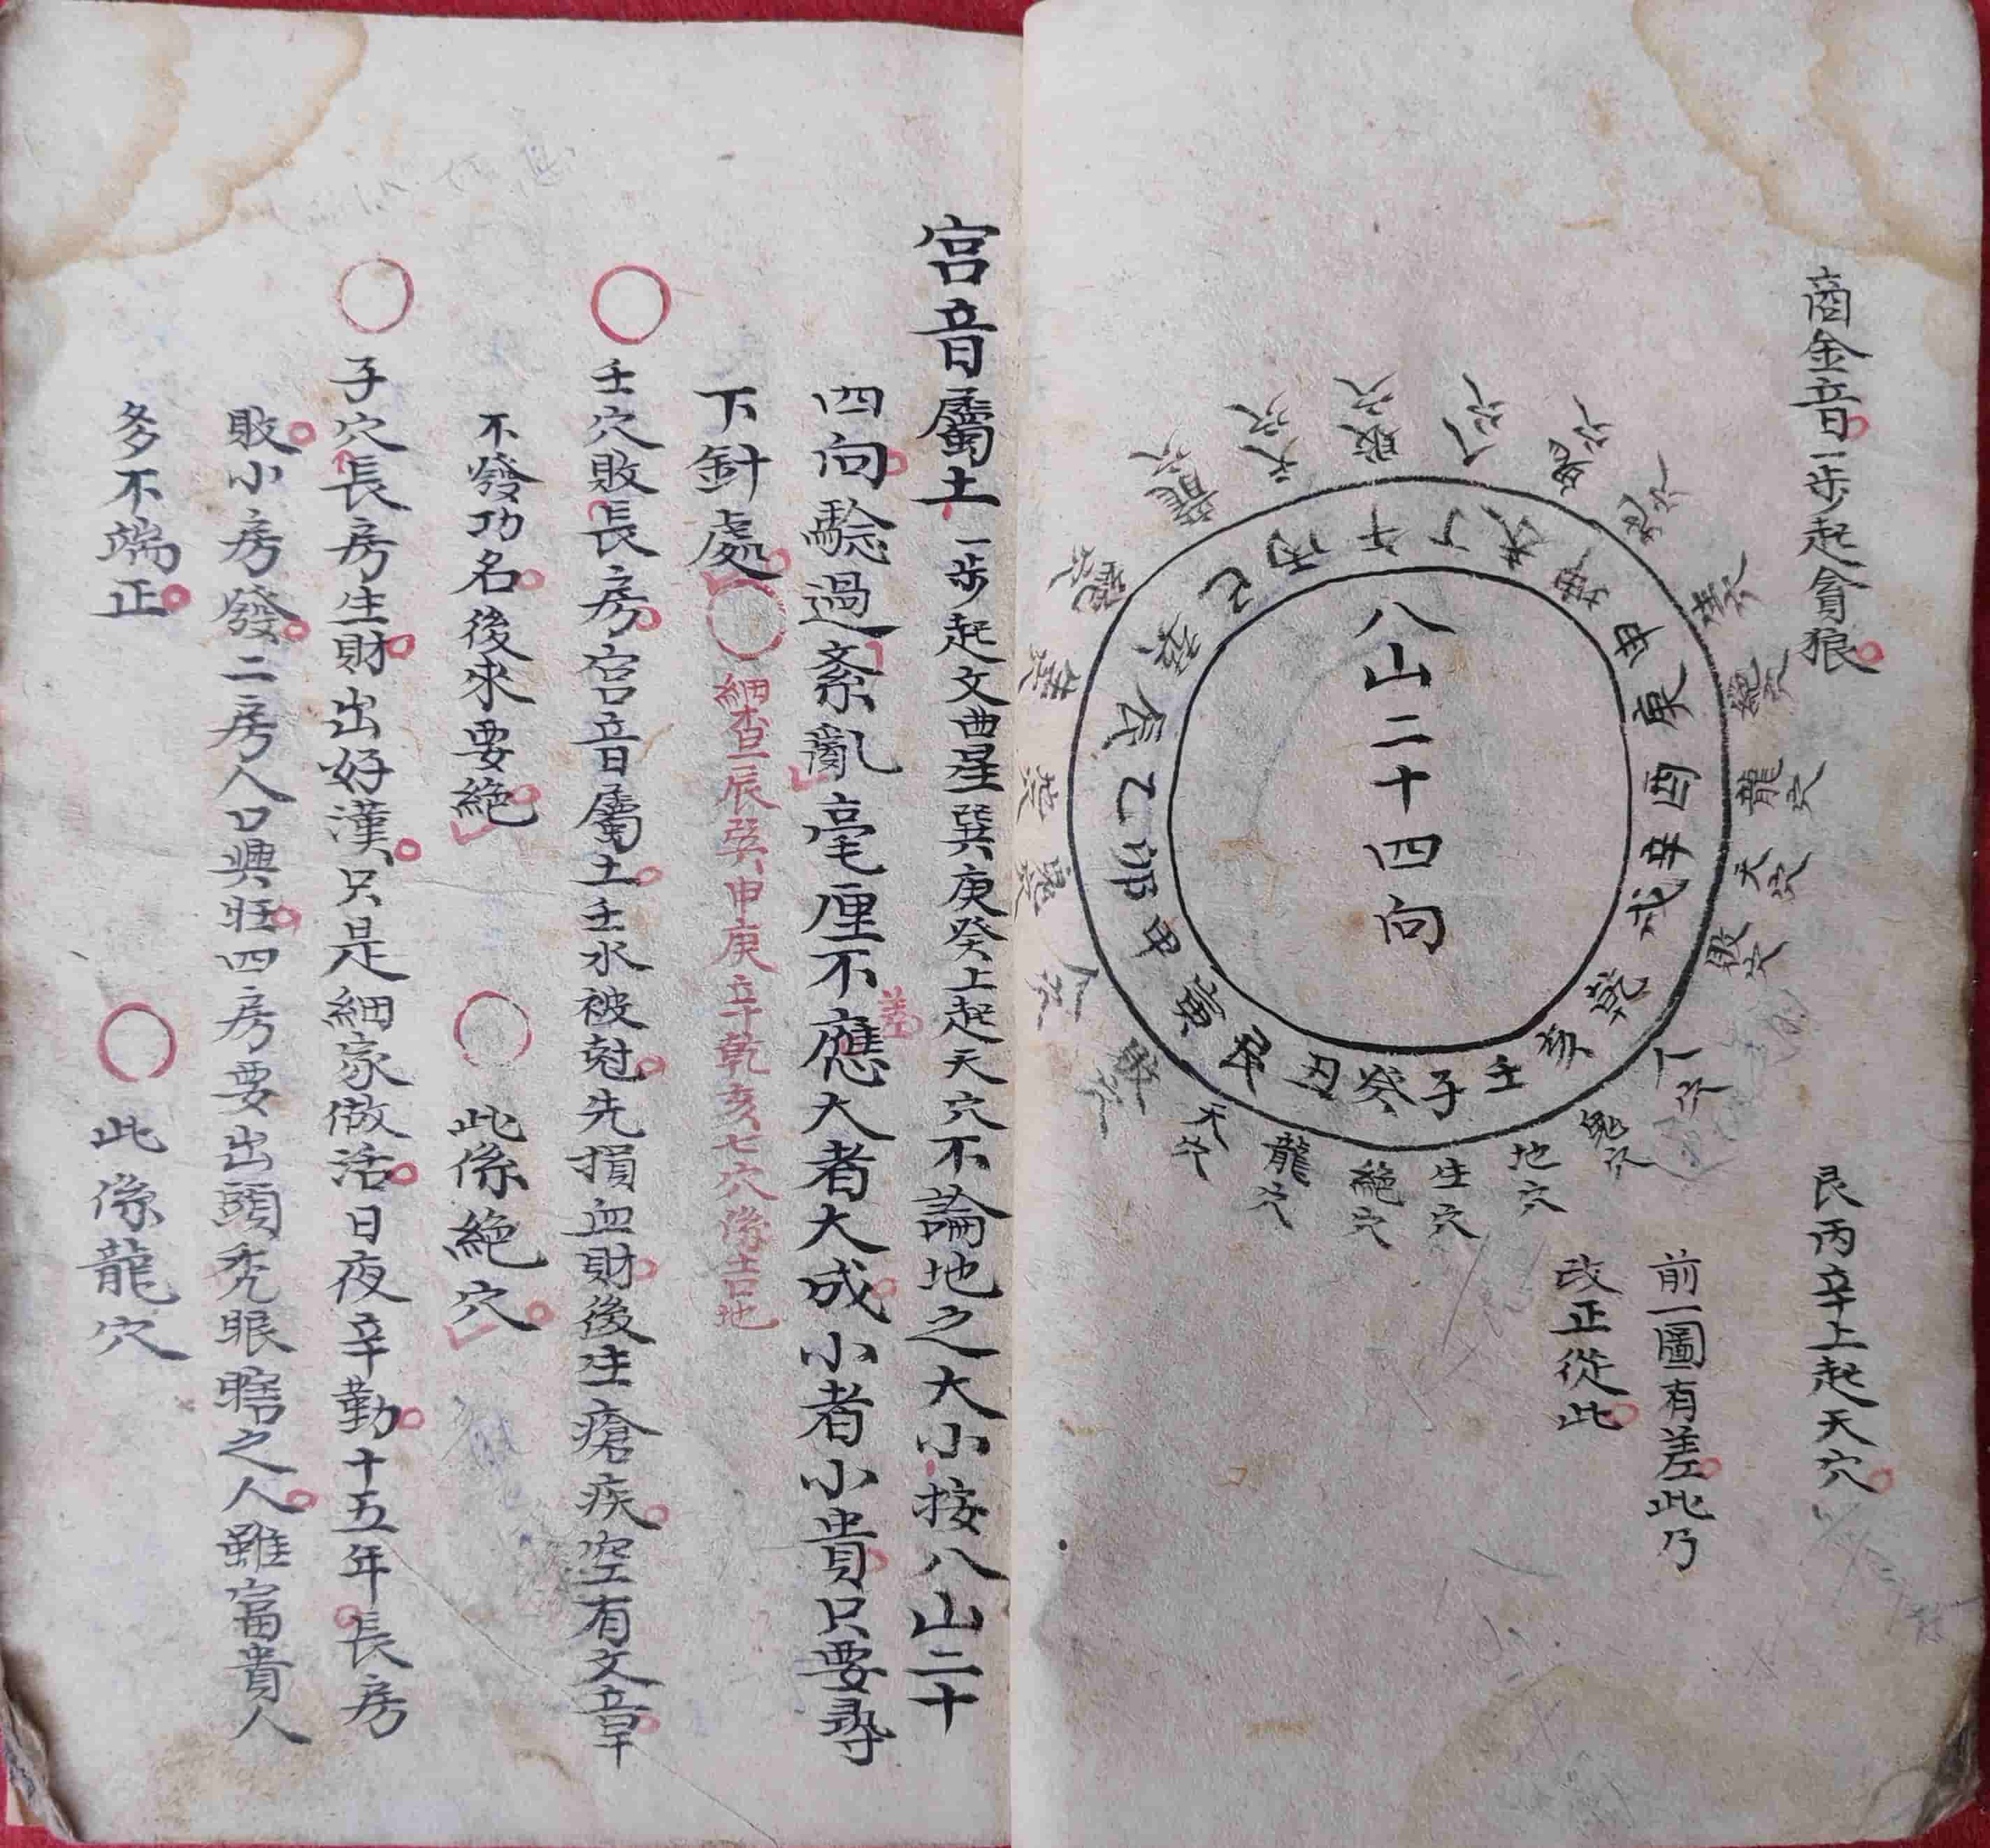 商金音一步起貪狼
艮丙辛上起天穴
八山二十四向
壬子癸丑艮寅甲卯乙辰巽巳丙午丁未坤申庚酉辛戌乾亥
地穴
生穴
絕穴
龍穴
天穴
敗穴
人穴
鬼穴
地穴
生穴
龍穴
龍穴
天穴
敗穴
人穴
鬼穴
地穴
生穴
絕穴
龍穴
天穴
敗穴
人穴
鬼穴
前一圖有差此乃
改正從此
宮音屬土一步起文曲星巽庚癸上起天穴不論地之大小按八山二十
四向驗過紊亂毫厘不應大者大成小者小貴只要尋
差
下針處
細查辰巽申庚辛乾亥七穴係吉地
壬穴敗長房宮音屬土壬水被尅先損血財後生瘡疾空有文章
不發功名後來要絕 此係絕穴
子穴長房生財出好漢只是細家做活日夜辛勤十五年長房
敗小房發二房人口興旺四房要出頭秃眼瞎之人雖富貴人
多不端正 此係龍穴